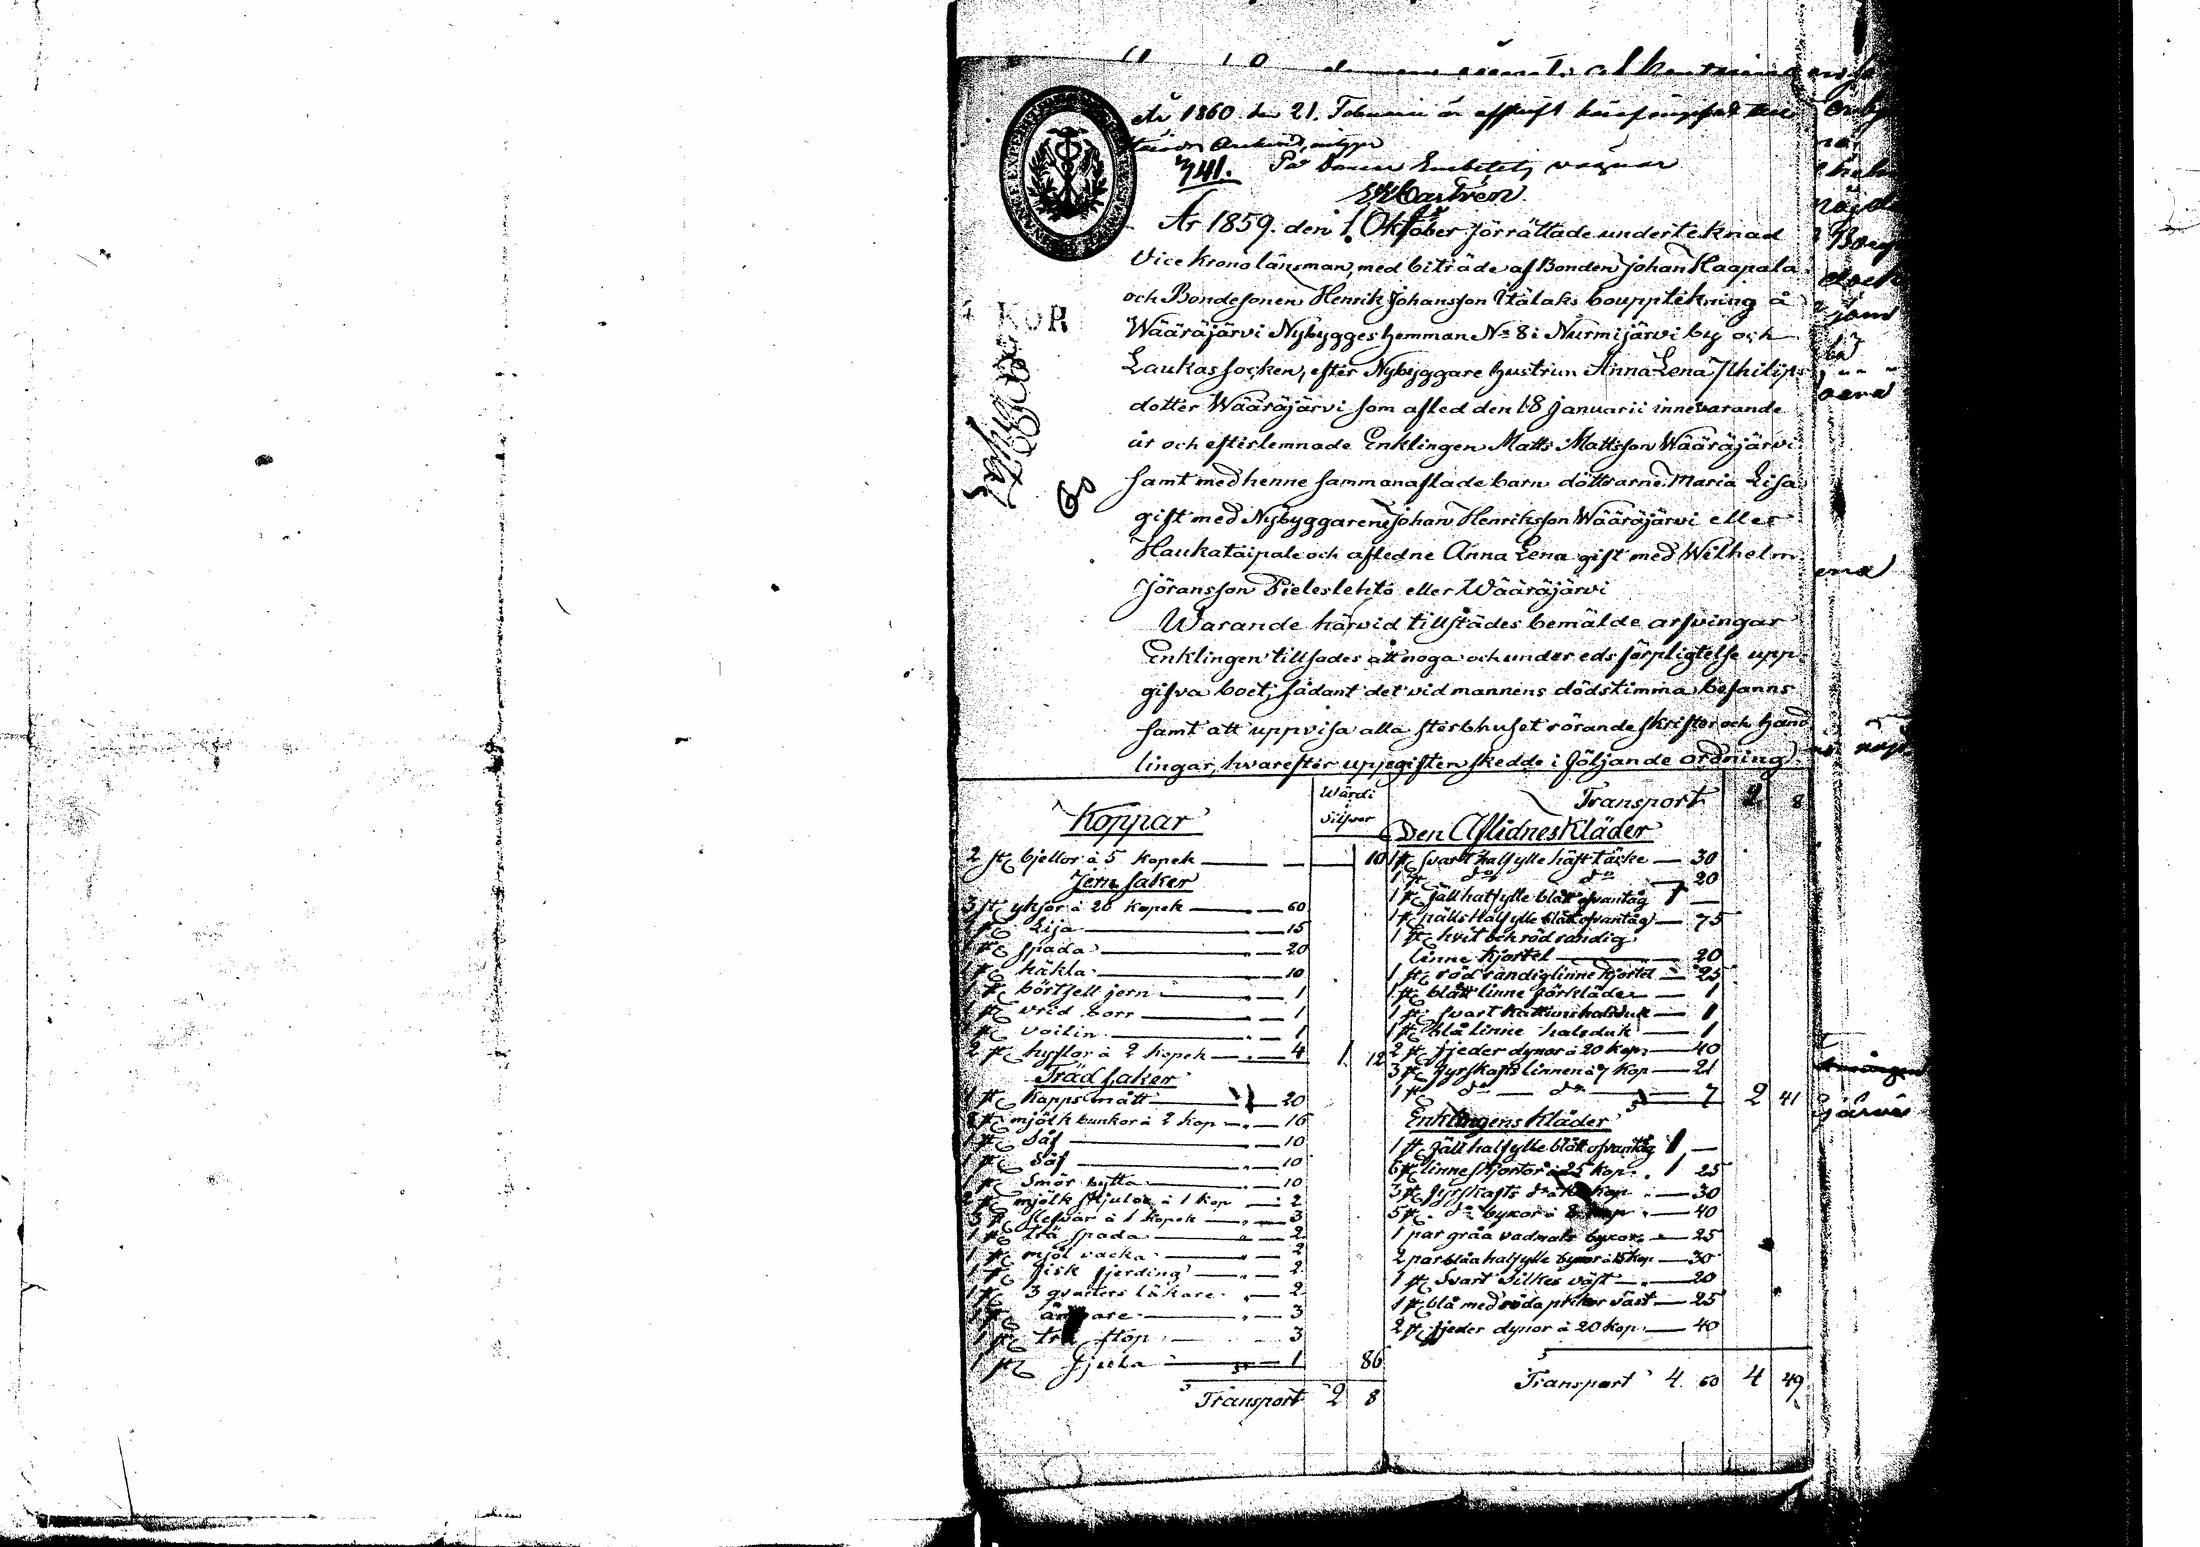 År 1860 den 21. Februarii är afskrift häraf
741. På Domare Embetets vägnar
Castrén
År 1859. den 1. Oktober förrättade undertecknad
Vice Kronolänsman, med biträde af Bonden Johan Haapala
och Bondesonen Henrik Johansson Itälaks bouppteckning å
Wääräjärvi Nybyggeshemman No 8 i Nurmijärvi by och
Laukas socken, efter Nybyggare hustrun Anna Lena Philips
dotter Wääräjärvi som afled den 18 Januarii innevarande
år och efterlemnade Enklingen Matts Mattsson Wääräjärvi
samt med henne sammanaflade barn döttrarne Maria Lisa
gift med Nybyggaren Johan Henriksson Wääräjärvi eller
Haukataipale och afledne Anna Lena gift med Wilhelm
Jöransson Pieleslehto eller Wääräjärvi
Warande härvid tillstädes bemälde arfvingar
Enklingen tillsades att noga och under eds förpligtelse upp
gifva boet, sådant det vid mannens dödstimma befanns
samt att uppvisa alla sterbhuset rörande skrifter och hand
lingar, hvarefter uppgiften skedde i följande ordning
KOR
60
Wärdi
Silfver
Koppar
2 st bjellor à 5 kopek 10
Jern saker
3 st yxor à 20 kopek 60
1 st Lija 15
1 st spada 20
1 st häkla 10
1 st jern 1
1 st vrid borr 1
1 st 1
2 st hyflor à 2 kopek 4 1 12
Träd saker
1 st Kappsmått 20
8 st mjölk bunkor à 2 kop 16
1 st Såf 10
1 st Såf 10
1 st Smör bytta 10
2 st mjölk à 1 kop 2
3 st slefvar à 1 kopek 3
1 st trä spada 2
1 st mjöl vacka 2
1 st fisk fjerding 2
1 st 3 qvarters 2
1 st 3
1 st trä stop 3
1 st 1 86
Transport 2 8
Transport 2 8
Den Aflidnes Kläder
1 st svart halfylle täcke 30
1 st do do 20
1 st halfylle blått ofvantåg 1 —
1 st halfylle blått ofvantåg 75
1 st hvit och röd randig
linne kjortel 20
1 st röd randig linne kjortel 25
1 st blått linne förkläde 1
1 st svart halsduk 1
1 st blå linne halsduk 1
2 st fjeder dynor à 20 kop 40
3 st fyrskafts linnen à 7 kop 21
1 st do do 7 2 41
Enklingens Kläder
1 st halfylle blått ofvantåg 1 —
5 st linne skjortor à 25 kop 1 25
3 st fyrskafts do à kop 30
5 st do byxor à 8 kop 40
1 par gråa vadmals byxor 25
2 par blåa halfylle byxor à 15 kop 30
1 st svart Silkes väst 20
1 st blå med röda väst 25
2 st fjeder dynor à 20 kop 40
Transport 4 60 4 49